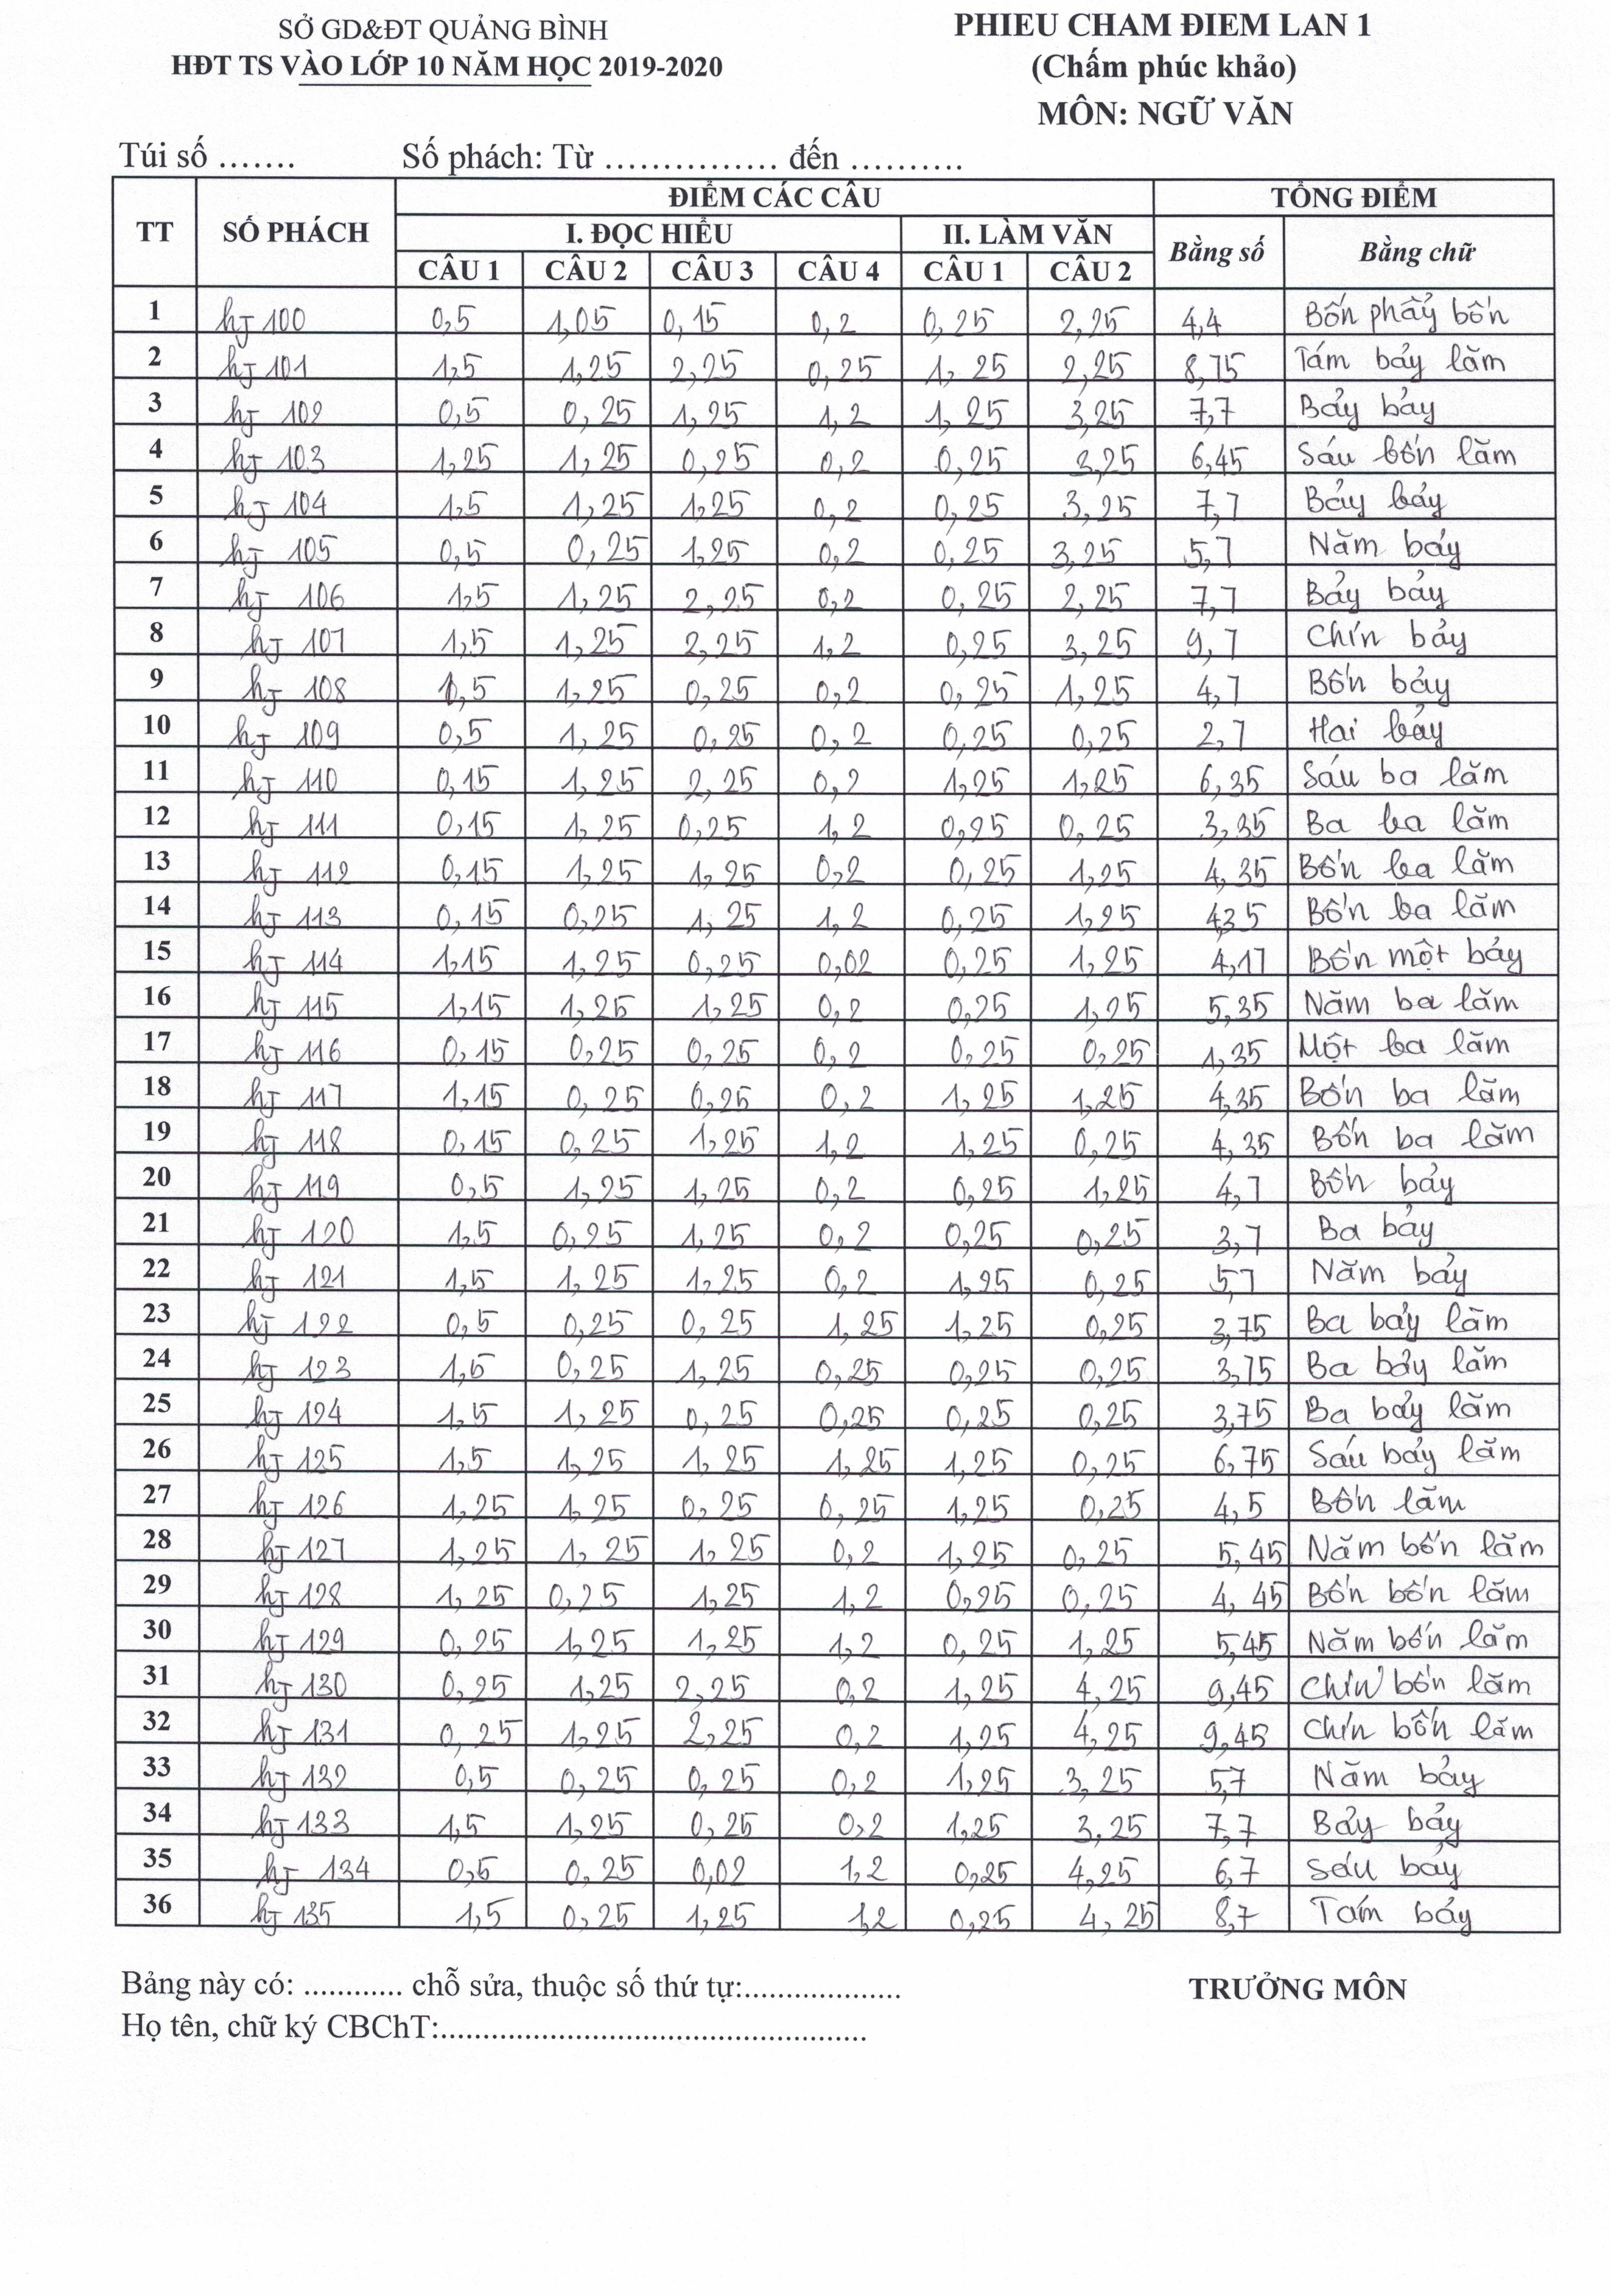 SỞ GD&ĐT QUẢNG BÌNH PHIEU CHAM ĐIEM LAN 1
HĐT TS VÀO LỚP 10 NĂM HỌC 2019-2020 (Chấm phúc khảo)
MÔN: NGỮ VĂN
Túi số ....... Số phách: Từ ............... đến ..........
TT SỐ PHÁCH ĐIỂM CÁC CÂU TỔNG ĐIỂM
I. ĐỌC HIỂU II. LÀM VĂN Bằng số Bằng chữ
CÂU 1 CÂU 2 CÂU 3 CÂU 4 CÂU 1 CÂU 2
1 hj 100 0,5 1,05 0,15 0,2 0,25 2,25 4,4 Bốn phẩy bốn
2 hj 101 1,5 1,25 2,25 0,25 1,25 2,25 8,75 Tám bảy lăm
3 hj 102 0,5 0,25 1,25 1,2 1,25 3,25 7,7 Bảy bảy
4 hj 103 1,25 1,25 0,25 0,2 0,25 3,25 6,45 Sáu bốn lăm
5 hj 104 1,5 1,25 1,25 0,2 0,25 3,25 7,7 Bảy bảy
6 hj 105 0,5 0,25 1,25 0,2 0,25 3,25 5,7 Năm bảy
7 hj 106 1,5 1,25 2,25 0,2 0,25 2,25 7,7 Bảy bảy
8 hj 107 1,5 1,25 2,25 1,2 0,25 3,25 9,7 Chín bảy
9 hj 108 1,5 1,25 0,25 0,2 0,25 1,25 4,7 Bốn bảy
10 hj 109 0,5 1,25 0,25 0,2 0,25 0,25 2,7 Hai bảy
11 hj 110 0,15 1,25 2,25 0,2 1,25 1,25 6,35 Sáu ba lăm
12 hj 111 0,15 1,25 0,25 1,2 0,25 0,25 3,35 Ba ba lăm
13 hj 112 0,15 1,25 1,25 0,2 0,25 1,25 4,35 Bốn ba lăm
14 hj 113 0,15 0,25 1,25 1,2 0,25 1,25 4,35 Bốn ba lăm
15 hj 114 1,15 1,25 0,25 0,02 0,25 1,25 4,17 Bốn một bảy
16 hj 115 1,15 1,25 1,25 0,2 0,25 1,25 5,35 Năm ba lăm
17 hj 116 0,15 0,25 0,25 0,2 0,25 0,25 1,35 Một ba lăm
18 hj 117 1,15 0,25 0,25 0,2 1,25 1,25 4,35 Bốn ba lăm
19 hj 118 0,15 0,25 1,25 1,2 1,25 0,25 4,35 Bốn ba lăm
20 hj 119 0,5 1,25 1,25 0,2 0,25 1,25 4,7 Bốn bảy
21 hj 120 1,5 0,25 1,25 0,2 0,25 0,25 3,7 Ba bảy
22 hj 121 1,5 1,25 1,25 0,2 1,25 0,25 5,7 Năm bảy
23 hj 122 0,5 0,25 0,25 1,25 1,25 0,25 3,75 Ba bảy lăm
24 hj 123 1,5 0,25 1,25 0,25 0,25 0,25 3,75 Ba bảy lăm
25 hj 124 1,5 1,25 0,25 0,25 0,25 0,25 3,75 Ba bảy lăm
26 hj 125 1,5 1,25 1,25 1,25 1,25 0,25 6,75 Sáu bảy lăm
27 hj 126 1,25 1,25 0,25 0,25 1,25 0,25 4,5 Bốn lăm
28 hj 127 1,25 1,25 1,25 0,2 1,25 0,25 5,45 Năm bốn lăm
29 hj 128 1,25 0,25 1,25 1,2 0,25 0,25 4,45 Bốn bốn lăm
30 hj 129 0,25 1,25 1,25 1,2 0,25 1,25 5,45 Năm bốn lăm
31 hj 130 0,25 1,25 2,25 0,2 1,25 4,25 9,45 Chín bốn lăm
32 hj 131 0,25 1,25 2,25 0,2 1,25 4,25 9,45 Chín bốn lăm
33 hj 132 0,5 0,25 0,25 0,2 1,25 3,25 5,7 Năm bảy
34 hj 133 1,5 1,25 0,25 0,2 1,25 3,25 7,7 Bảy bảy
35 hj 134 0,5 0,25 0,02 1,2 0,25 4,25 6,7 Sáu bảy
36 hj 135 1,5 0,25 1,25 1,2 0,25 4,25 8,7 Tám bảy
Bảng này có: ............ chỗ sửa, thuộc số thứ tự:................... TRƯỞNG MÔN
Họ tên, chữ ký CBChT:...................................................